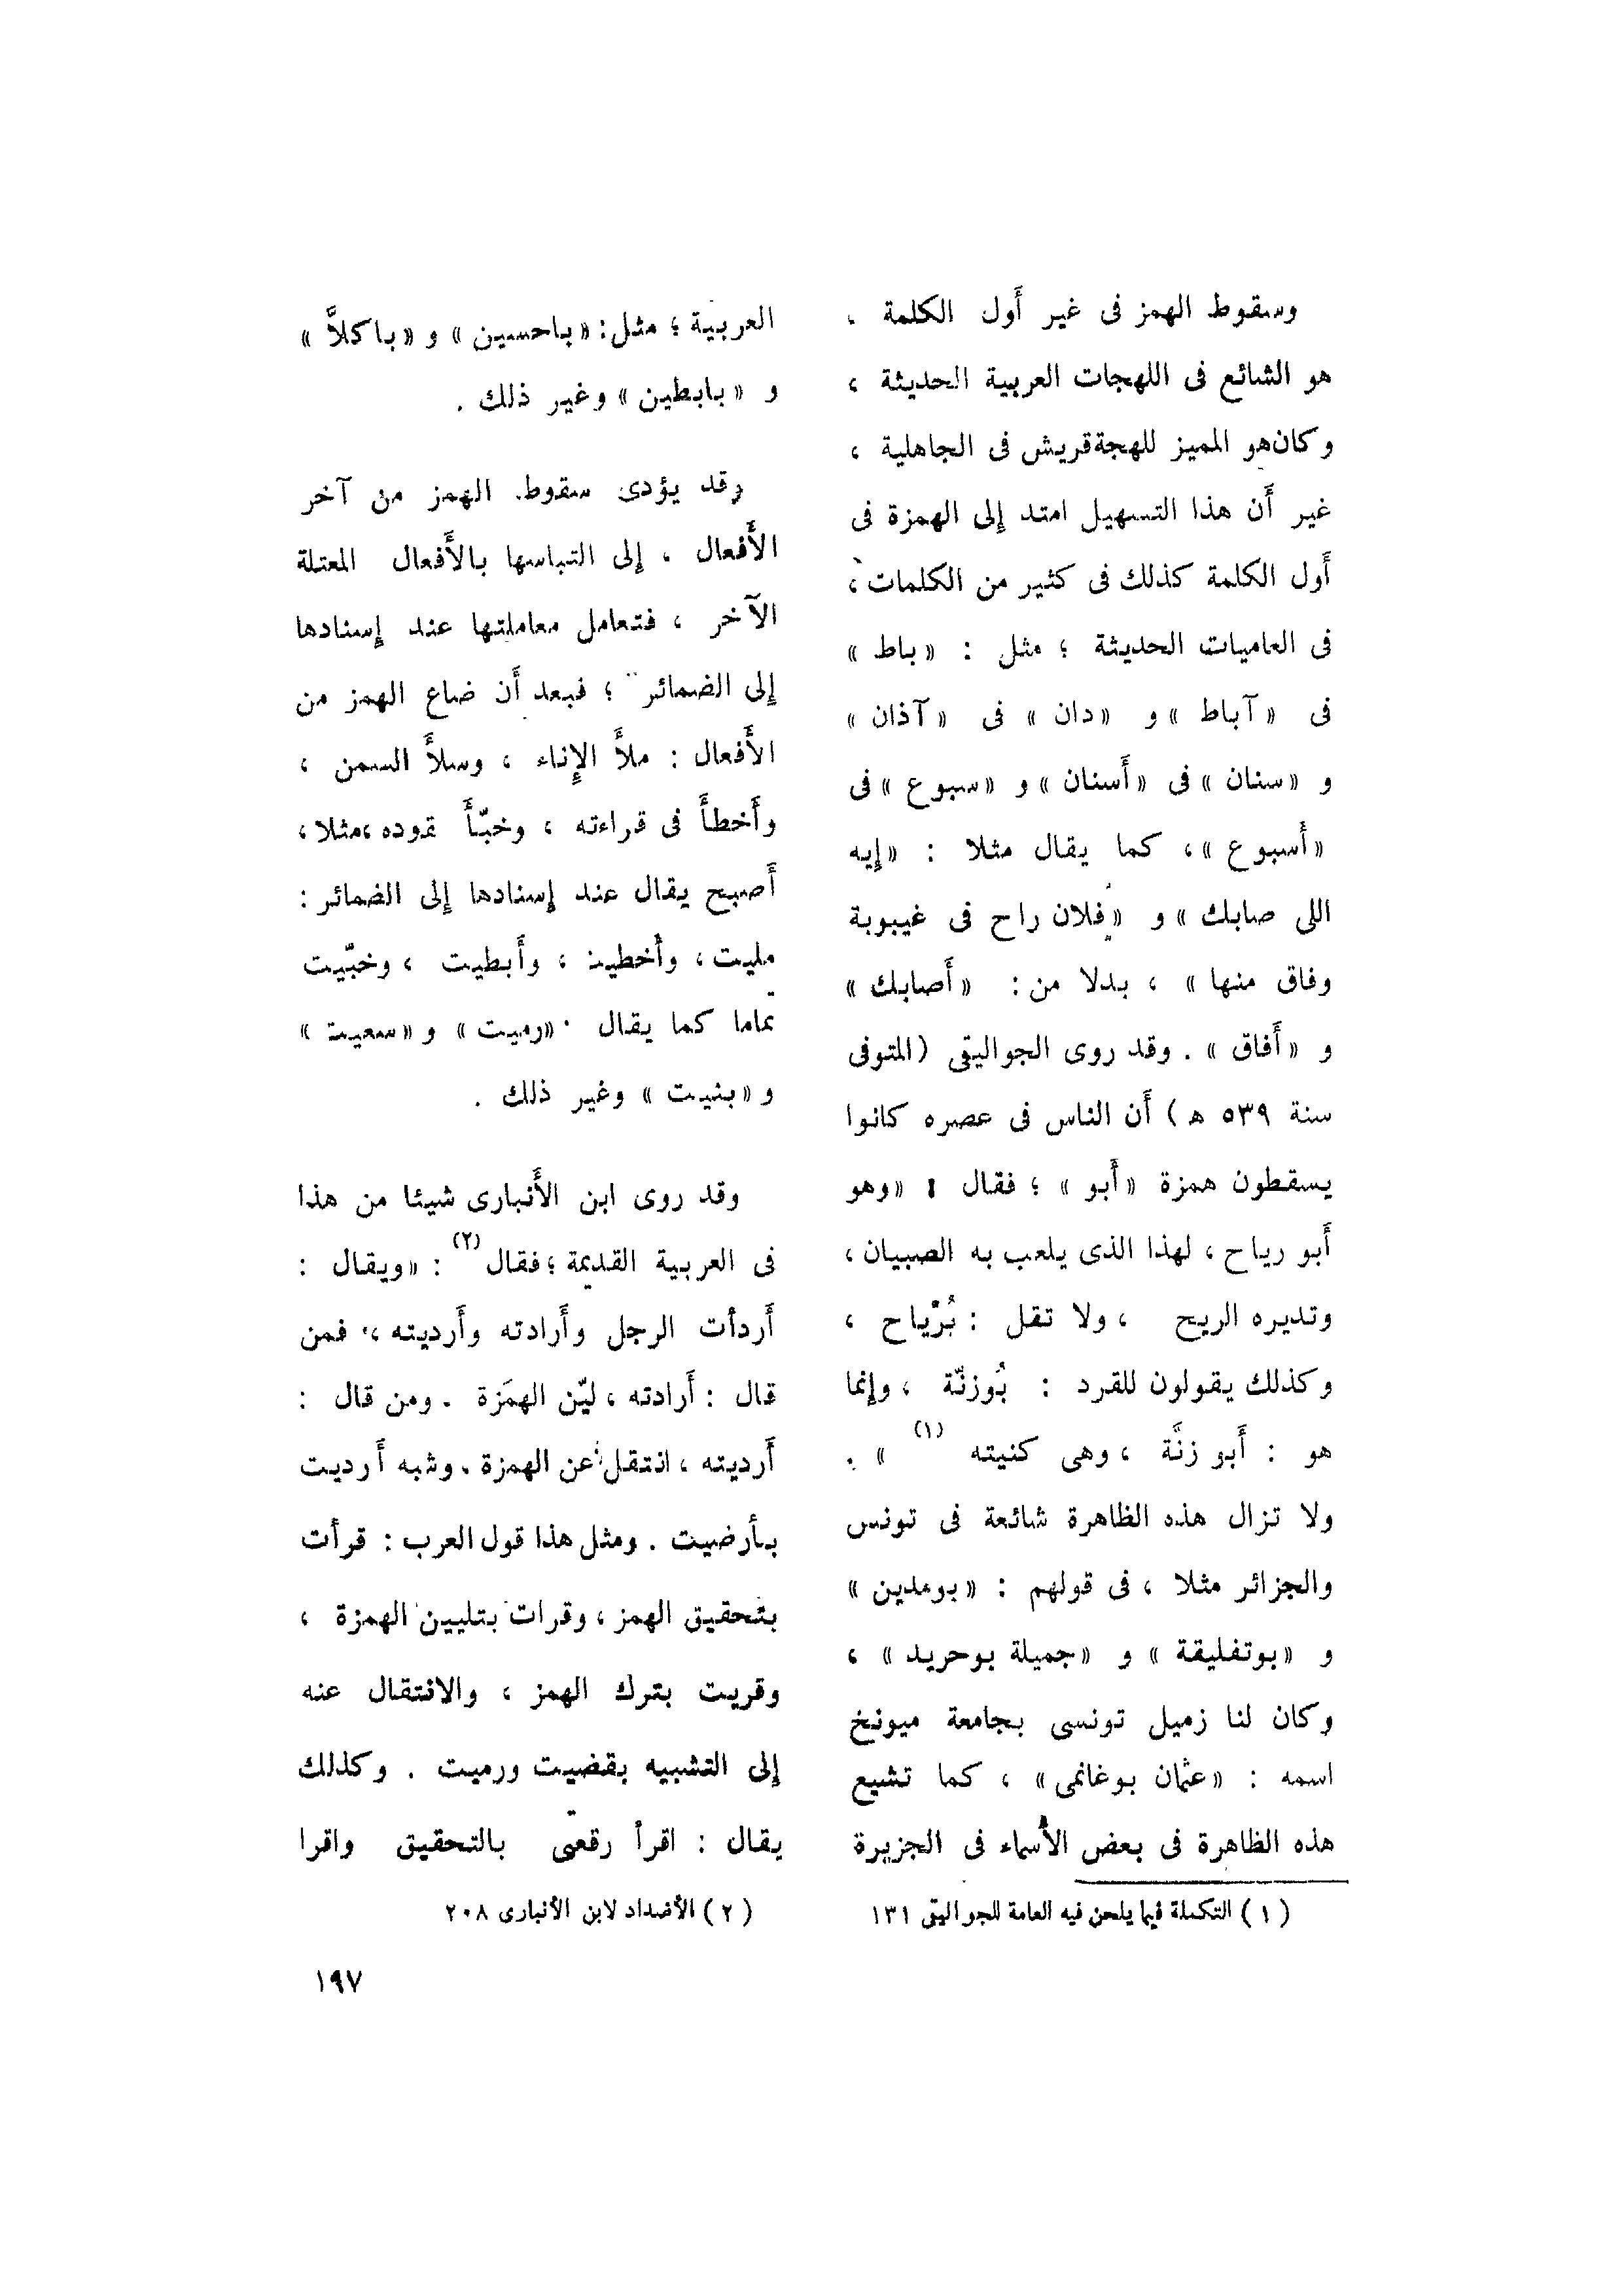 وسقوط الهمز فى غير أول الكلمة ،
هو الشائع فى اللهجات العربية الحديثة ،
وكان هو المميز للهجة قريش فى الجاهلية ،
غير أن هذا التسهيل امتد إلى الهمزة فى
أول الكلمة كذلك فى كثير من الكلمات ،
فى العاميات الحديثة ؛ مثل : «باط»
فى «آباط» و «دان» فى «آذان»
و «سنان» فى «أسنان» و «سبوع» فى
«أسبوع» ، كما يقال مثلا : «إيه
اللى صابك» و «فلان راح فى غيبوبة
وفاق منها» ، بدلا من : «أصابك»
و «أفاق» . وقد روى الجواليقى (المتوفى
سنة ٥٣٩ ه) أن الناس فى عصره كانوا
يسقطون همزة «أبو» ؛ فقال : «وهو
أبو رياح ، لهذا الذى يلعب به الصبيان ،
وتديره الريح ، ولا تقل : بُرَّياح ،
وكذلك يقولون للقرد : بُوزنّة ، وإنما
هو : أبو زنَّة ، وهى كنيته (١) » .
ولا تزال هذه الظاهرة شائعة فى تونس
والجزائر مثلا ، فى قولهم : «بومدين»
و «بوتفليقة» و «جميلة بوحريد» ،
وكان لنا زميل تونسى بجامعة ميونخ
اسمه : «عثمان بوغانمى» ، كما تشيع
هذه الظاهرة فى بعض الأسماء فى الجزيرة
(١) التكملة فيما يلحن فيه العامة للجواليقى ١٣١
العربية ؛ مثل : «باحسين» و «باكلاَّ»
و «بابطين» وغير ذلك .
وقد يؤدى سقوط الهمز من آخر
الأفعال ، إلى التباسها بالأفعال المعتلة
الآخر ، فتعامل معاملتها عند إسنادها
إلى الضمائر ؛ فبعد أن ضاع الهمز من
الأفعال : ملأ الإناء ، وسلأ السمن ،
وأخطأ فى قراءته ، وخبّأ نقوده ، مثلا ،
أصبح يقال عند إسنادها إلى الضمائر :
مليت ، وأخطيت ، وأبطيت ، وخبّيت
تماما كما يقال : «رميت» و «سعيت»
و «بنيت» وغير ذلك .
وقد روى ابن الأنبارى شيئا من هذا
فى العربية القديمة ؛ فقال (٢) : «ويقال :
أردأت الرجل وأرادته وأرديته ، فمن
قال : أرادته ، ليّن الهمَزة . ومن قال :
أرديته ، انتقل عن الهمزة ، وشبه أرديت
بأرضيت . ومثل هذا قول العرب : قرأت
بتحقيق الهمز ، وقرات بتليين الهمزة ،
وقريت بترك الهمز ، والانتقال عنه
إلى التشبيه بقضيت ورميت . وكذلك
يقال : اقرأ رقعتى بالتحقيق واقرا
(٢) الأضداد لابن الأنبارى ٢٠٨
١٩٧